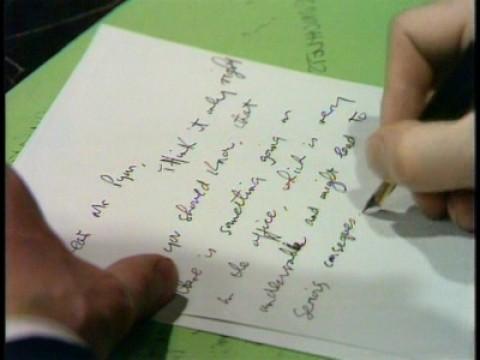 Dear Mr Pym,
I think it only right
you should know, that
there is something going on
in the office, which is very
undesirable and might lead to
serious conseques